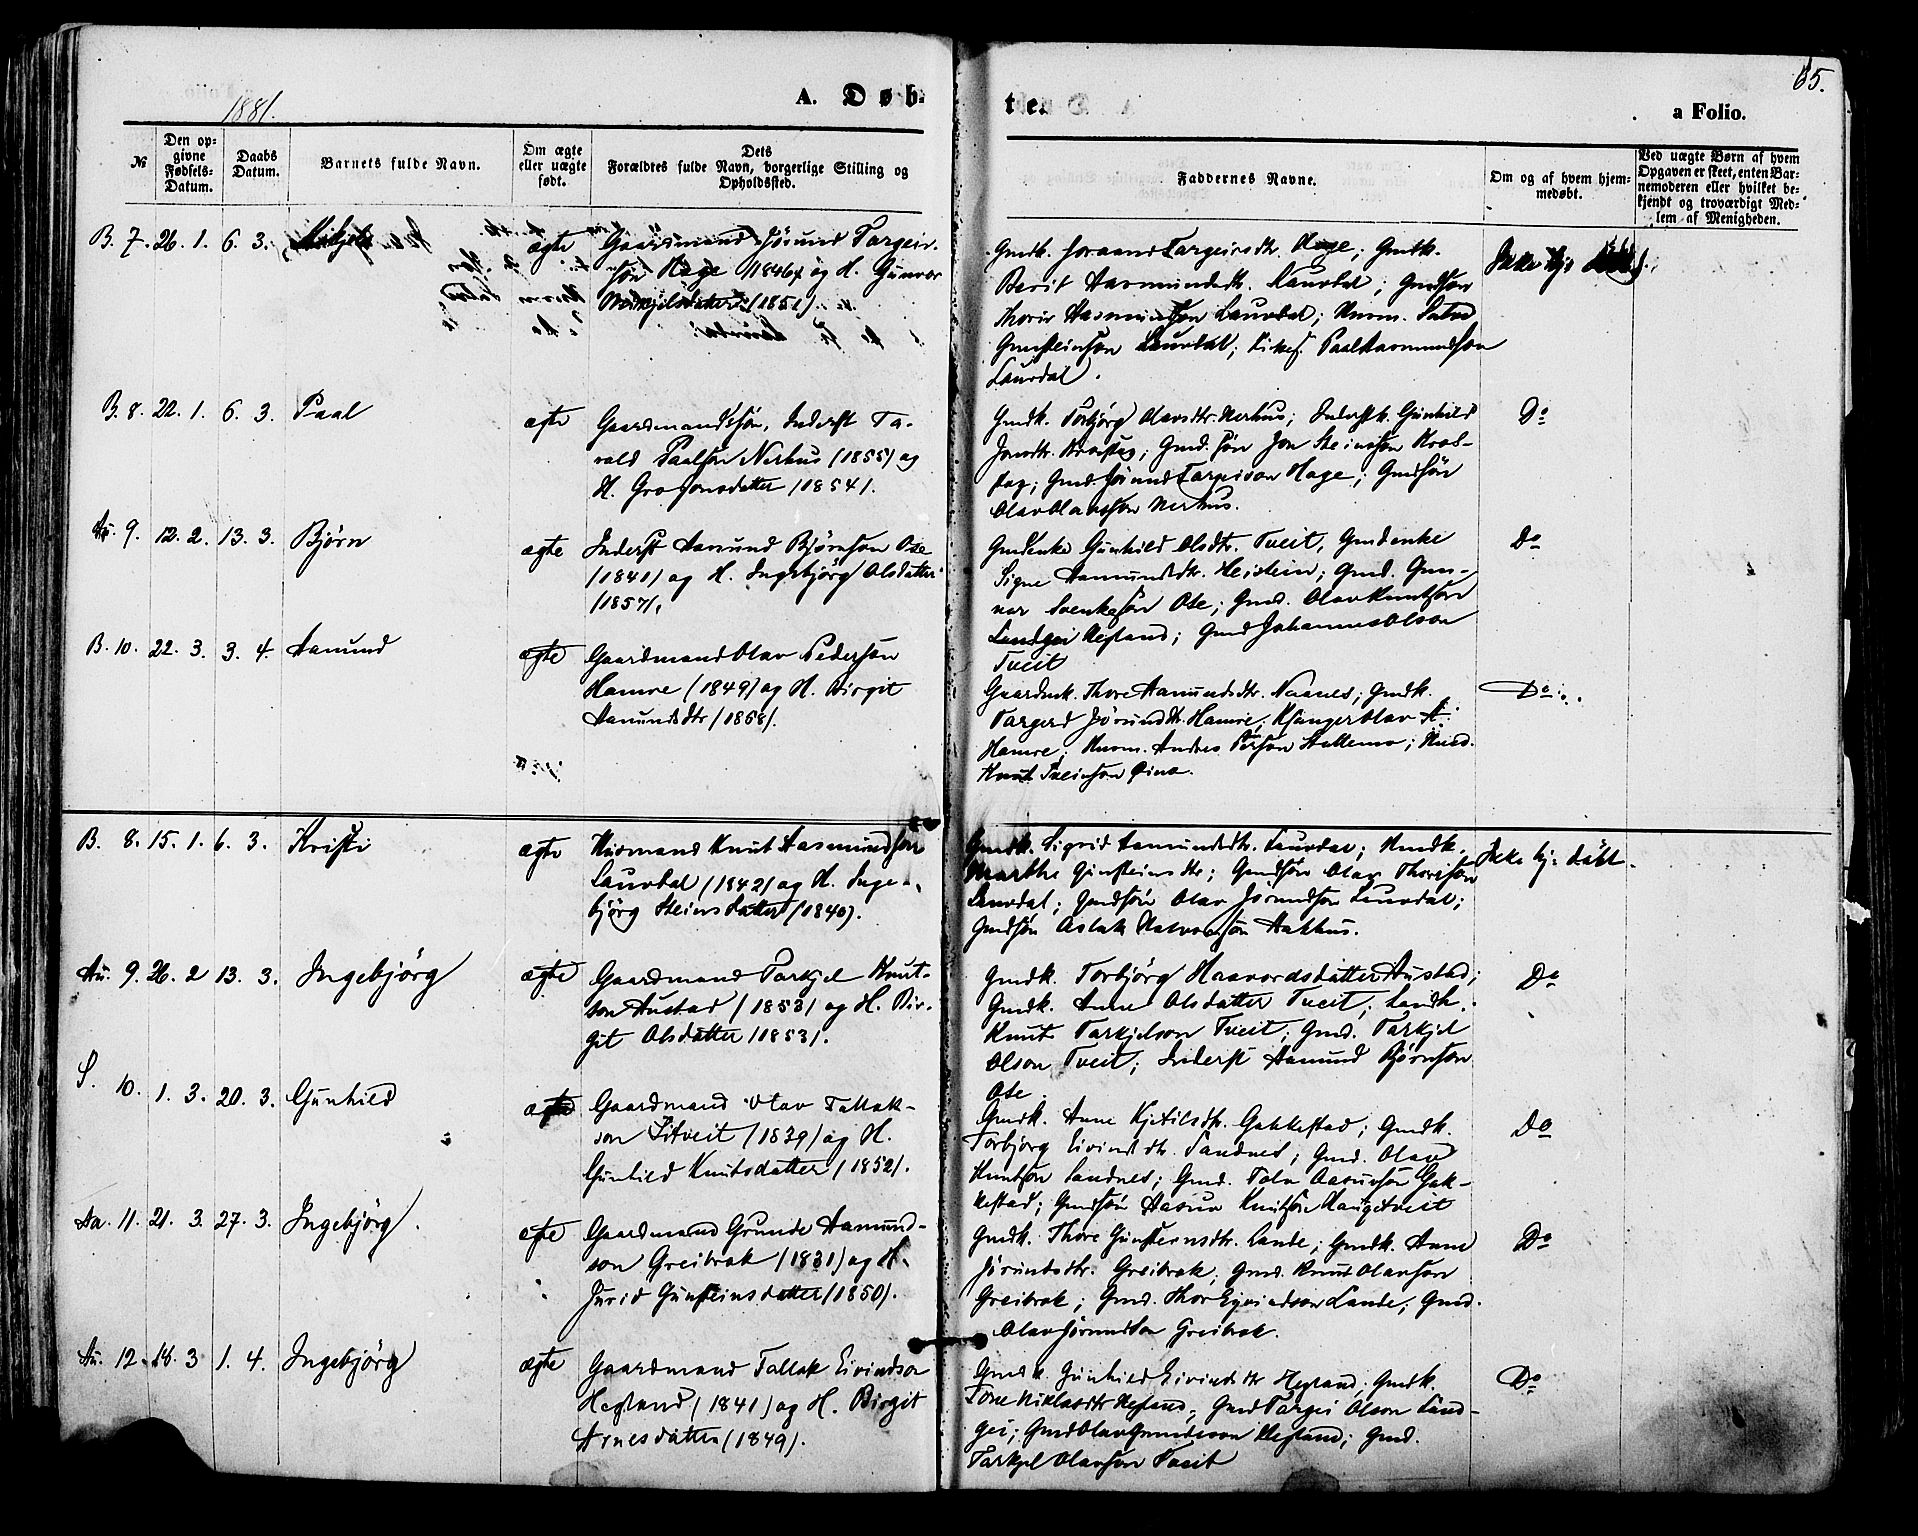 1881.
A. Døb-
te.
65.
a Folio.
№
Den op-
givne
Fødsels-
Datum.
Daabs
Datum.
Barnets fulde Navn.
Om ægte
eller uægte
født.
Dets
Forældres fulde Navn, borgerlige Stilling og
Opholdssted.
Faddernes Navne.
Om og af hvem hjem-
medøbt.
Ved uægte Børn af hvem
Opgaven er skeet, enten Bar-
nemoderen eller hvilket be-
kjendt og troværdigt Med-
lem af Menigheden.
B. 7. 26. 1. 6. 3.
ægte
Gaardmand Jørund Targeir-
søn Hage (1846) og H. Gunvor
(1851).
Gmdk. Targeirsdtr. Hage; Gmdk.
Berit Aasmundsdtr. Laurdal; Gmdsøn
Thorir Aasmundsøn Laurdal; Husm.
Gunsteinsøn Laurdal; Kirkes. Paal Aasmundsøn
Laurdal.
Ikke hj.
B. 8. 22. 1. 6. 3. Paal
ægte
Gaardmandssøn, Inderst Ta-
rald Paalsøn Nerhus (1855) og
H. Gro Jonsdatter (1854).
Gmdk. Torbjörg Olavsdtr. Nerhus; Inderstk. Gunhild
Jonsdtr. Gmd.søn Jon Steinsøn
Gmd. Jörund Targeirson Hage; Gmdsön
Olav Olavsøn Nerhus.
Do
Au. 9. 12. 2. 13. 3. Björn
ægte
Inderst Aamund Bjørnsøn Ose
(1841) og H. Ingebjörg Olsdatter
(1857).
Gmdenke Gunhild Olsdtr. Tveit, Gmdenke
Signe Aamundsdtr. Heistein; Gmd. Gun-
nar Svenkesøn Ose; Gmd. Olav Knutsøn
Landgei Hegland; Gmd Johannes Olson
Tveit
Do
B. 10. 22. 3. 3. 4. Aamund
ægte
Gaardmand Olav Pedersøn
Hamre (1849) og H. Birgit
Aamundsdtr (1858).
Gaardmk. Thore Aamundsdtr. Naanes; Gmdk.
Targerd Jørundsdtr. Hamre; Ksanger Olav A.
Hamre; Husm. Andres
Knut
Do
B. 8. 15. 1. 6. 3. Kristi
ægte
Husmand Knut Aasmundsøn
Laurdal (1842) og H. Inge-
björg Steinsdatter (1840).
Gmdk. Sigrid Aamundsdtr. Laurdal; Husmdk.
Marthe Gunsteinsdtr; Gmdsøn Olav Thorison
Laurdal; Gmdsön Olav Jörundson Laurdal;
Gmdsøn Aslak Halvorsøn Aakhus.
Ikke hj. döbt.
Au. 9. 26. 2 13. 3. Ingebjörg
ægte
Gaardmand Tarkjel Knut-
son Austad (1853) og H. Bir-
git Olsdatter (1853).
Gmdk. Torbjörg Haavordsdatter Austad;
Gmdk. Anne Olsdatter Tveit;
Knut Tarkjelson Tveit; Gmd. Tarkjel
Olson Tveit; Inderst Aamund Bjørnson
Ose.
Do
S. 10. 1. 3. 20. 3. Gunhild
ægte
Gaardmand Olav Tallak-
son Sitveit (1839) og H.
Gunhild Knutsdatter (1852).
Gmdk. Anne Kjetilsdtr. Gakkestad; Gmdk.
Torbjörg Eivindsdtr. Sandnes; Gmd. Olav
Knutson Sandnes; Gmd. Tolv Aasurson Gak-
kestad; Gmdsön Aasur Knutsøn Haugetveit
Do
Aa. 11. 21. 3. 27. 3. Ingebjörg.
ægte
Gaardmand Grunde Aamund-
son Greibrok (1831) og H.
Jurid Gunsteinsdatter (1850).
Gmdk. Thore Gunsteinsdtr. Lande; Gmdk. Anne
Jörundsdtr. Greibrok; Gmd. Knut Olavson
Greibrok; Gmd. Thor Eyvindson Lande; Gmd.
Olav Jørundson Greibrok.
Do
Au. 12. 18. 3 1. 4. Ingebjörg
ægte
Gaardmand Tallak Eivindson
Hegland (1841) og H. Birgit
Arnesdatter (1849).
Gmdk. Gunhild Eivindsdtr Hegland; Gmdk.
Tone Niklasdtr Hegland; Gmd Targei Olson Land-
gei; Gmd Olav Gundersøn Hegland; Gmd.
Tarkjel Olavson Tveit
Do